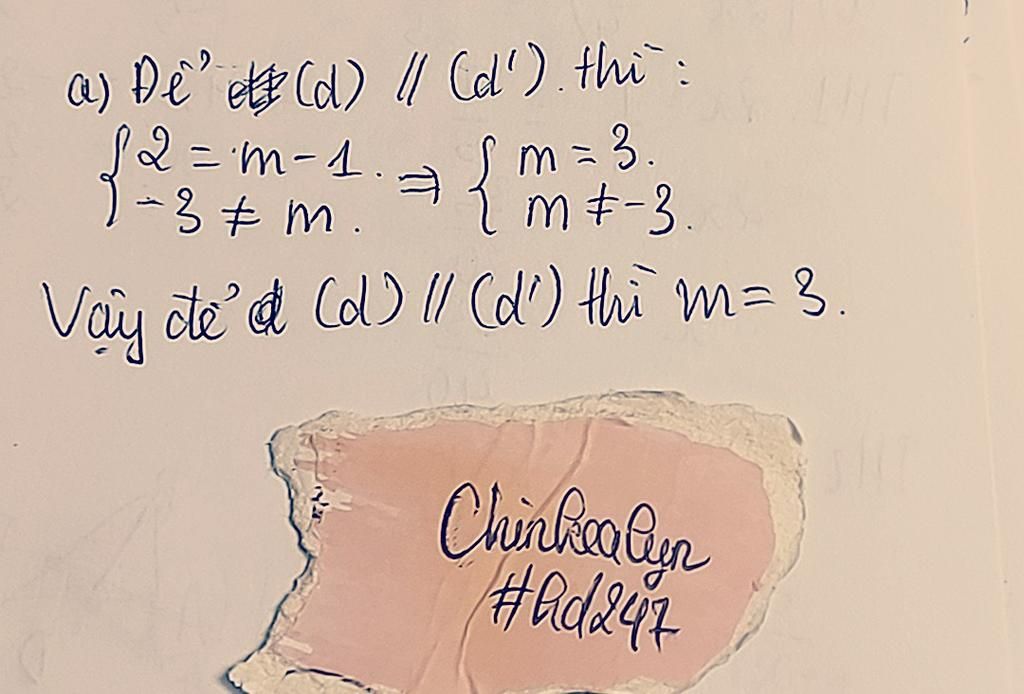 a) Để (d) // (d'). thì :
{ 2 = m - 1. ⇒ { m = 3.
-3 ≠ m. m ≠ -3.
Vậy để (d) // (d') thì m = 3.
Chinkealyn
#hd247